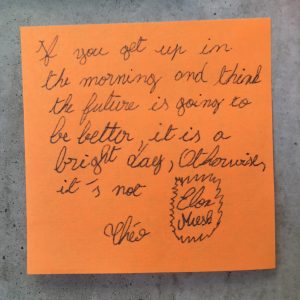 If you get up in
the morning and think
the future is going to
be better, it is a
bright day, Otherwise,
it's not
Elon
Musk
Théo